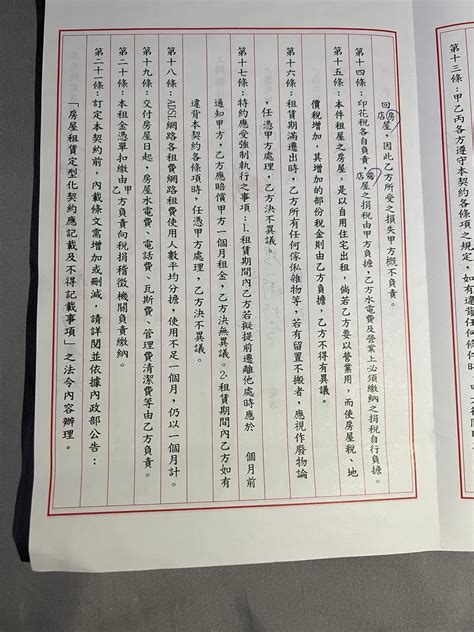 第十三條：甲乙丙各方遵守本契約各條項之規定，如有違背任何條
回房屋店，因此乙方所受之損失甲方概不負責。
第十四條：印花稅各自負責，房屋店之捐稅由甲方負擔，乙方水電費及營業上必須繳納之捐稅自行負擔。
第十五條：本件租屋之房屋，是以自用住宅出租，倘若乙方要以營業用，而使房屋稅、地
價稅增加，其增加的部份稅金則由乙方負擔，乙方不得有異議。
第十六條：租賃期滿遷出時，乙方所有任何傢俬雜物等，若有留置不搬者，應視作廢物論
，任憑甲方處理，乙方決不異議。
第十七條：特約應受強制執行之事項：1.租賃期間內乙方若擬提前遷離他處時應於　個月前
通知甲方，乙方應賠償甲方一個月租金，乙方決無異議。2.租賃期間內乙方如有
違背本契約各條項時，任憑甲方處理，乙方決不異議。
第十八條：ADSL網路各租費網路租費使用人數平均分擔，使用不足一個月，仍以一個月計。
第十九條：交付房屋日起，房屋水電費、電話費、瓦斯費、管理費清潔費等由乙方負責。
第二十條：本租金憑單扣繳由甲方負責向稅捐稽徵機關負責繳納。
第二十一條：訂定本契約前，內載條文需增加或刪減，請詳閱並依據內政部公告：
「房屋租賃定型化契約應記載及不得記載事項」之法令內容辦理。